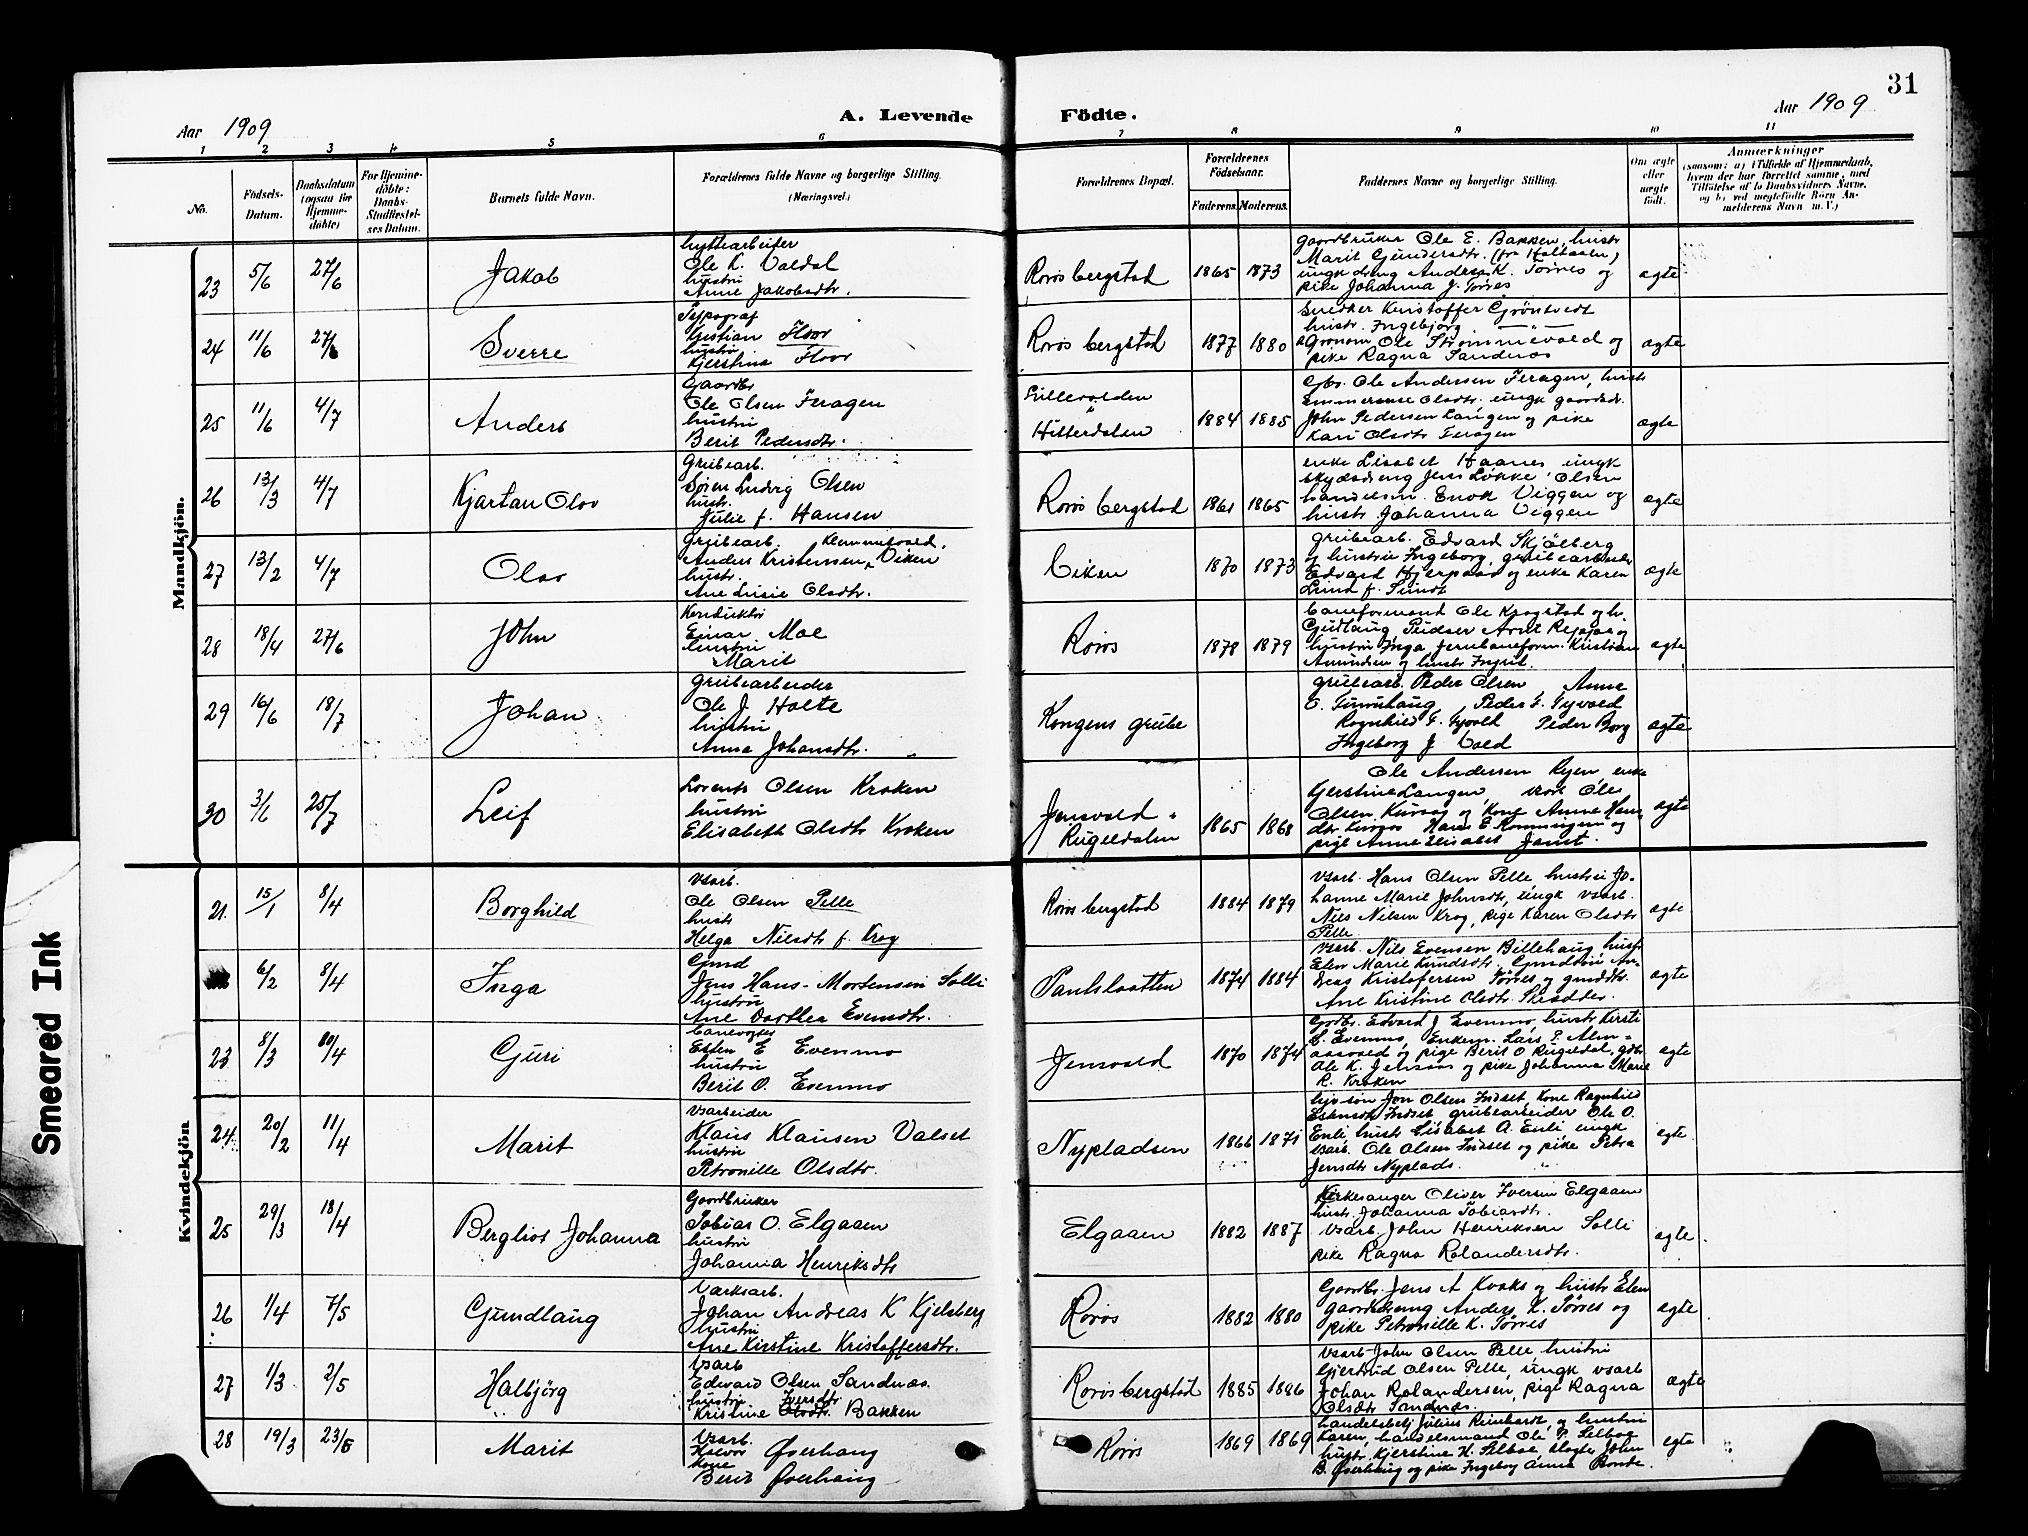 31
Aar 1909
A. Levende
Födte.
Aar 1909
1 2 3 4 5 6 7 8 9 10 11
No.
Födsels-
Datum.
Daabsdatum
(ogsaa for
Hjemme-
döbte)
For Hjemme-
döbte:
Daabs-
Stadfæstel-
ses Datum.
Barnets fulde Navn.
Forældrenes fulde Navne og borgerlige Stilling.
(Næringsvei.)
Forældrenes Bopæl.
Forældrenes
Födselsaar.
Faderens. Moderens.
Faddernes Navne og borgerlige Stilling.
Om ægte
eller
uægte
født.
Anmærkninger
(saasom: a) i Tilfælde af Hjemmedaab,
hvem der har forrettet samme, med
Tilføielse af to Daabsvidners Navne,
og b) ved uægtefödte Börn An-
melderens Navn m. V.)
Mandkjön.
23 5/6 27/6 Jakob
hyttearbeiter
Ole K. Valdal
hustru
Anne Jakobsdtr.
Røros bergstad 1865 1873
gaardbruker Ole E. Bakken, hustr
Marit Gundersdtr. (fra Holtaalen)
ungk. dreng Anders K. Torres og
pike Johanna J. Torres
ægte
24 11/6 27/6 Sverre
Typograf
Kristian Floor
hustru
Kjerstine Floor
Røros bergstad 1877 1880
Snedker Kristoffer Grøntvedt
hustr. Ingebjørg
Agronom Ole Strømmevold og
pike Ragna Sandnæs
ægte
25 11/6 4/7 Anders
Gaardbr
Ole Olsen Feragen
hustru
Berit Pedersdtr.
Lillevolden
Hitterdalen 1884 1885
Gbr. Ole Andersen Feragen, hustr
Emmerense Olsdtr. ungk gaardsdr.
John Pedersen Langen og pike
Kari Olsdtr Feragen
ægte
26 13/3 4/7 Kjartan Olav
Grubearb.
Søren Ludvig Olsen
hustr.
Julie f. Hansen
Røros bergstad 1861 1865
enke Lisabet Haanes, ungk
skydsdreng Jens Løkke Olsen
handelsm. Enok Viggen og
hustr Johanna Viggen
ægte
27 13/2 4/7 Olav
Grubearb. Klemmetvold.
Anders Kristensen, Viken
hustr.
Ane Lusie Olsdtr.
Viken 1870 1873
grubearb. Edvard Skjølberg
og hustru Ingeborg, grubearbeider
Edvard Hjerpaas og enke Karen
Lund f. Sundt
ægte
28 18/4 27/6 John
Konduktør
Einar Moe
hustru
Marit
Røros 1878 1879
baneformand Ole Krogstad og h.
Gudlaug, Pudser Arnt Reppe og
hustru Inga, Jernbaneform. Kristian
Amundsen og hustr Ingrid.
ægte
29 16/6 18/7 Johan
Grubearbeider
Ole J. Holte
hustru
Anna Johansdtr.
Kongens grube
grubearb. Peder Olsen Anne
E. Tuvnhaug, Peder F. Gyvold
Ragnhild F. Gyvold Peder Borg
Ingeborg J. Vold
ægte
30 3/6 25/7 Leif
Lorents Olsen Kroken
hustru
Elisabeth Olsdtr Kroken
Jensvold -
Rugeldalen 1865 1868
Ole Andersen Ryen, enke
Gjerstine Langen vsarb Ole
Olsen Kuraas og kone Anne Hans
dtr Kuraas Hans E. Rønningen og
pige Anne Elisabet Jamt.
ægte
Kvindekjön
21. 15/1 8/4 Borghild
Vsarb.
Ole Olsen Pelle
hustr
Helga Nilsdtr f. Krog
Røros bergstad 1884 1879
Vsarb. Hans Olsen Pelle hustru Jo-
hanne Marie Johnsdtr, ungk vsarb.
Nils Nilsen Krog, pige Karen Olsdtr
Pelle.
ægte
6/2 8/4 Inga
Gmd
Jens Hans-Mortensen Solli
hustru
Ane Dorthea Evensdtr.
Paulslaatten 1874 1884
Vsarb. Nils Evensen Billehaug hustr
Elen Marie Knudsdtr. Gmdssøn An-
dreas Kristofersen Torres og gmddtr.
Ane Kristine Olsdtr Skistdder
ægte
23 8/3 10/4 Guri
banevogter
Esten E Evenmo
hustru
Berit O. Evenmo
Jensvold 1870 1874
Grdbr. Edvard J Evenmo, hustr Kirsti
E. Evenmo, Enkem. Lars P. Alm-
aasvold og pige Berit O Rugeldal, gdbr.
Ole K. Jensaas og pike Johanna Marie
R. Kroken
ægte
24 20/2 11/4 Marit
Vsarbeider
Klaus Klausen Valset
hustru
Petronille Olsdtr.
Nypladsen 1866 1871
Jon Olsen Indset, kone Ragnhild
Estensdtr Indset, grubearbeider Ole O.
Enli hustr Lisabet A. Enli ungk
vsarb. Ole Olsen Indset og pike Petra
Jensdtr Nyplads.
ægte
25 29/3 18/4 Bergliot Johanna
Gaardbruker
Tobias O. Elgaaen
hustru
Johanna Henriksdtr
Elgaaen 1882 1887
Kirkesanger Oliver Iversen Elgaaen
hustr. Johanna Tobiasdtr.
vsarb. John Henriksen Solli
pike Ragna Rolandersdtr.
ægte
26 1/4 7/5 Gundlaug
Værksarb.
Johan Andreas K Kjelsberg
hustru
Ane Kirstine Kristoffersdtr.
Røros 1882 1880
Gaardbr. Jens A Kvaks og hustr Elen
gaardsdreng Anders K. Torres og
pike Petronille K. Torres
ægte
27 1/3 2/5 Halbjörg
Vsarb
Edevard Olsen Sandnæs.
hustru Iversdtr
Kristine Olsdtr. Bakken
Røros bergstad 1885 1886
Vsarb John Olsen Pelle hustru
Gjertrud Olsen Pelle, ungk vsarb
Johan Rolandersen, pige Ragna
Olsdtr Sandnæs.
ægte
28 19/3 23/5 Marit
Vsarb.
Halvor Øverhaug
Kone
Berit Øverhaug
Røros 1869 1869
handelsbetj Julius Reinhardt og hustru
Karen, handelsmand Ole P. Selboe
hustr. Kjerstine H. Selboe slagter John
B. Øverhaug og pike Ingeborg Anna Bonde.
ægte
Smeared Ink